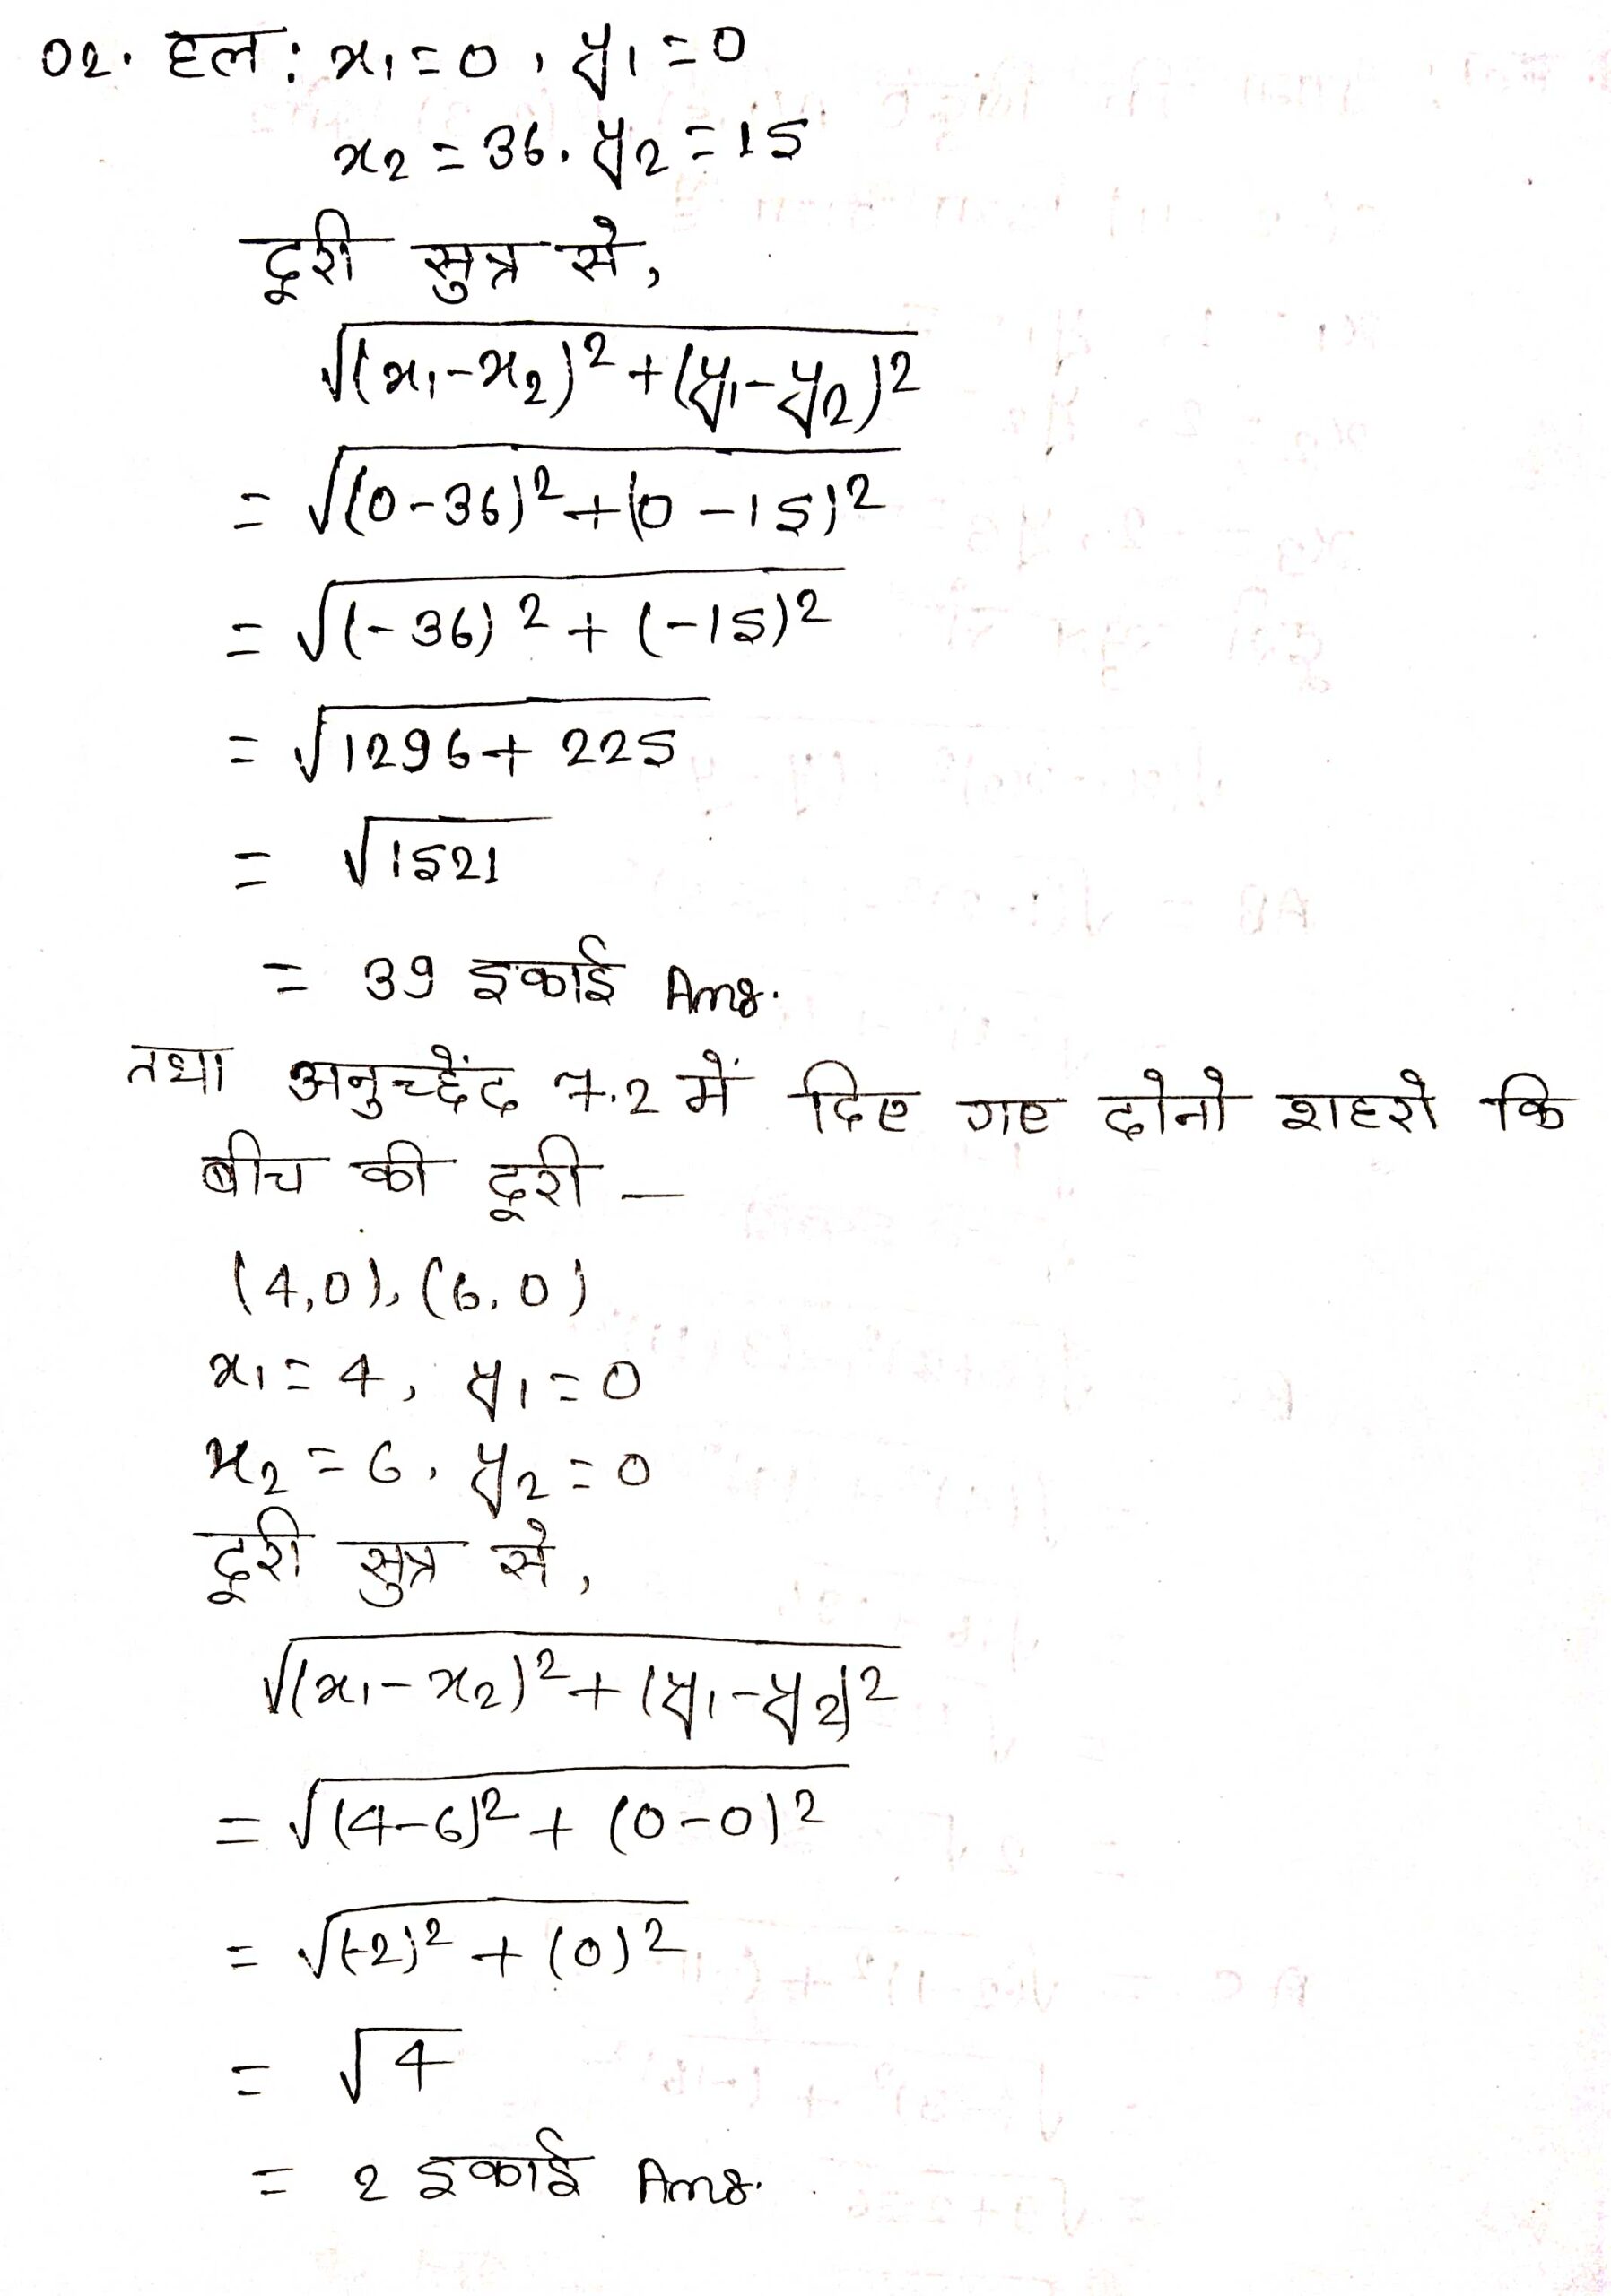 02. हल: x₁=0, y₁=0
x₂=36, y₂=15
दूरी सुत्र से,
√(x₁-x₂)²+(y₁-y₂)²
= √(0-36)²+(0-15)²
= √(-36)²+(-15)²
= √1296+225
= √1521
= 39 इकाई Ans.
तथा अनुच्छेंद 7.2 में दिए गए दोनो शहरो कि
बीच की दूरी —
(4,0), (6,0)
x₁=4, y₁=0
x₂=6, y₂=0
दूरी सुत्र से,
√(x₁-x₂)²+(y₁-y₂)²
= √(4-6)²+(0-0)²
= √(-2)²+(0)²
= √4
= 2 इकाई Ans.